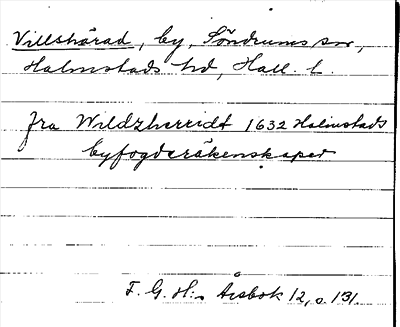 Villshärad, by, Söndrums sn,
Halmstads hd, Hall. l.
fra Wildzherridt 1632 Halmstads
byfogderäkenskaper
F. G. H:s Årsbok 12, s. 131.